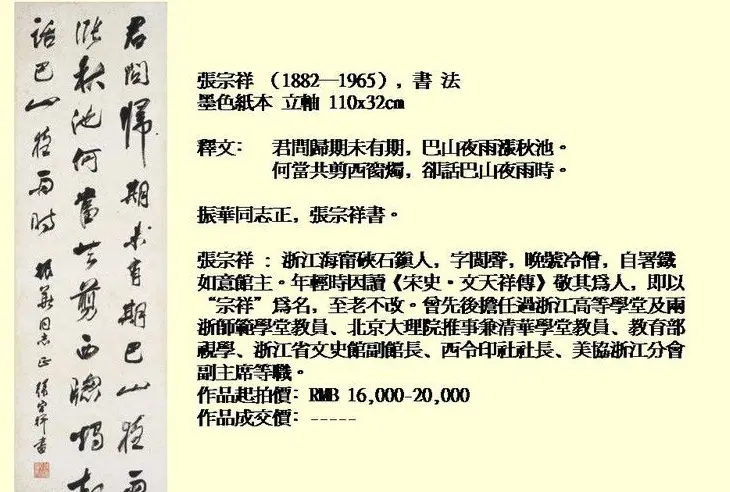 君問歸期未有期巴山夜雨
漲秋池何當共剪西窗燭卻
話巴山夜雨時
振華同志正 張宗祥書
張宗祥 （1882—1965），書 法
墨色紙本 立軸 110x32cm
釋文： 君問歸期未有期，巴山夜雨漲秋池。
何當共剪西窗燭，卻話巴山夜雨時。
振華同志正，張宗祥書。
張宗祥 ：浙江海甯硤石鎮人，字閬聲，晚號冷僧，自署鐵
如意館主。年輕時因讀《宋史·文天祥傳》敬其爲人，即以
“宗祥”爲名，至老不改。曾先後擔任過浙江高等學堂及兩
浙師範學堂教員、北京大理院推事兼清華學堂教員、教育部
視學、浙江省文史館副館長、西令印社社長、美協浙江分會
副主席等職。
作品起拍價：RMB 16,000-20,000
作品成交價：-----